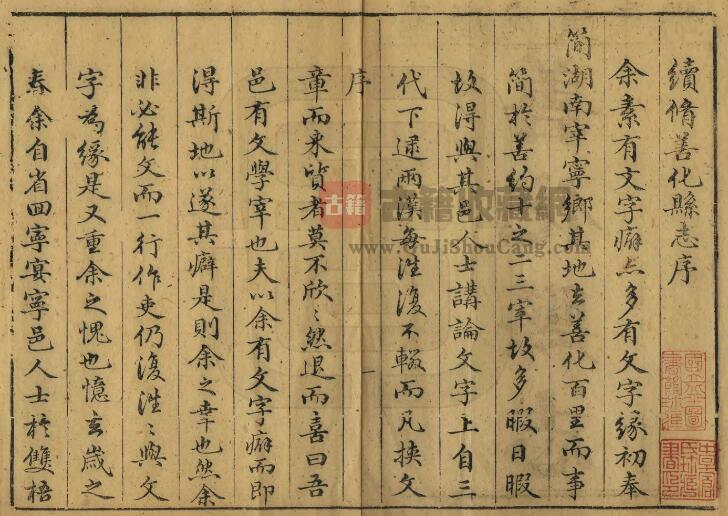 續脩善化縣志序
余素有文字癖亦多有文字緣初奉
簡湖南宰寧鄉其地去善化百里而事
簡於善約十之二三宰故多暇日暇
故得與其邑人士講論文字上自三
代下逮兩漢無不往復不輟而凡挾文
序
一
章而來質者莫不欣〻然退而喜曰吾
邑有文學宰也夫以余有文字癖而即
得斯地以遂其癖是則余之幸也然余
非必能文而一行作吏仍復往〻與文
字為緣是又重余之愧也憶去歲之
春余自省回寧宴寧邑人士於雙梧
古籍
古籍收藏網
www.GuJiShouCang.com